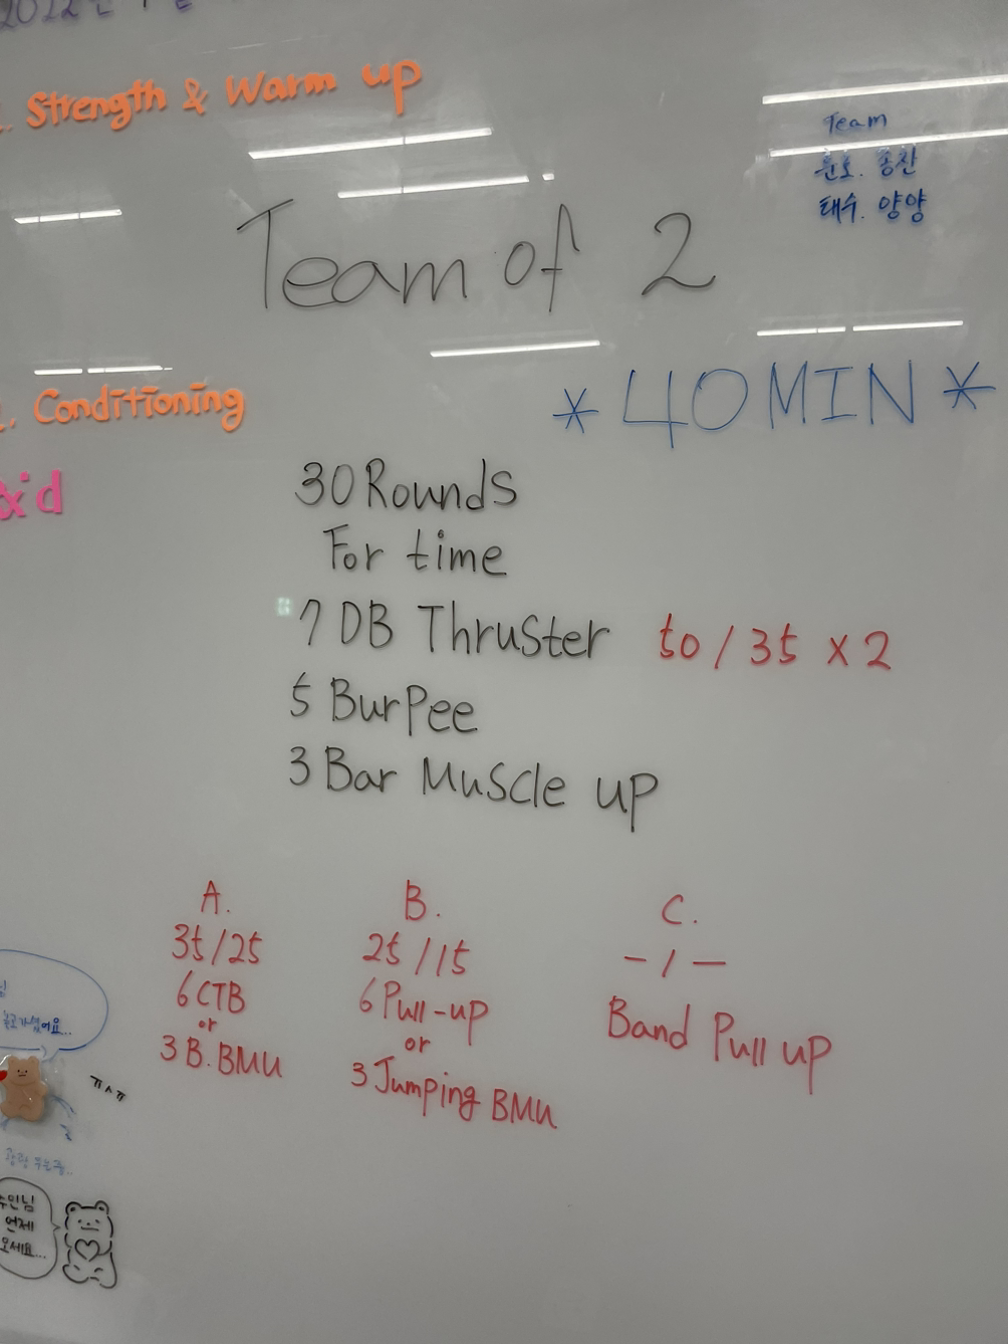 2022년
. Strength & Warm up
Team
윤호. 종찬
태수. 양양
Team of 2
. Conditioning
* 40 MIN *
x'd
30 Rounds
For time
7 DB Thruster 50 / 35 x 2
5 BurPee
3 Bar Muscle up
A.
35 / 25
6 CTB
or
3 B. BMU
B.
25 / 15
6 Pull-up
or
3 Jumping BMU
C.
- / -
Band Pull up
ㅠㅅㅠ
수민님
언제
오세요...